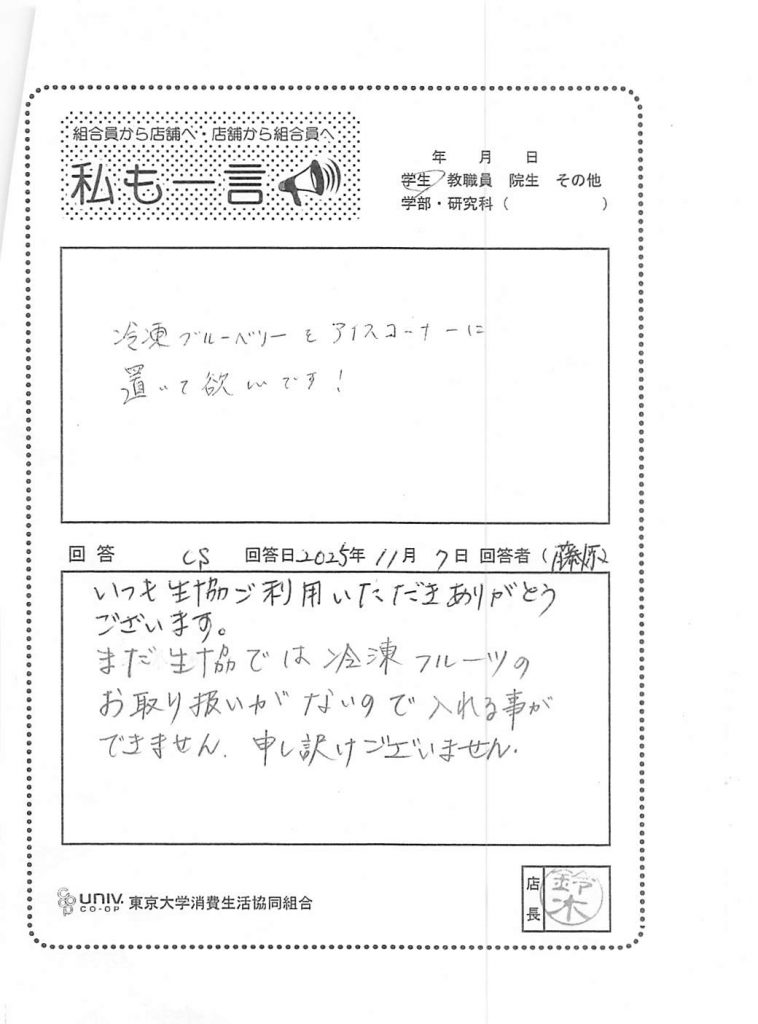 組合員から店舗へ・店舗から組合員へ
私も一言
年 月 日
学生 教職員 院生 その他
学部・研究科（ ）
冷凍ブルーベリーをアイスコーナーに
置いて欲しいです！
回答 CS 回答日2025年 11月 7日 回答者（藤原）
いつも生協ご利用いただきありがとう
ございます。
まだ生協では冷凍フルーツの
お取り扱いがないので入れる事が
できません。申し訳けございません。
coop UNIV. CO-OP 東京大学消費生活協同組合
店長 鈴木